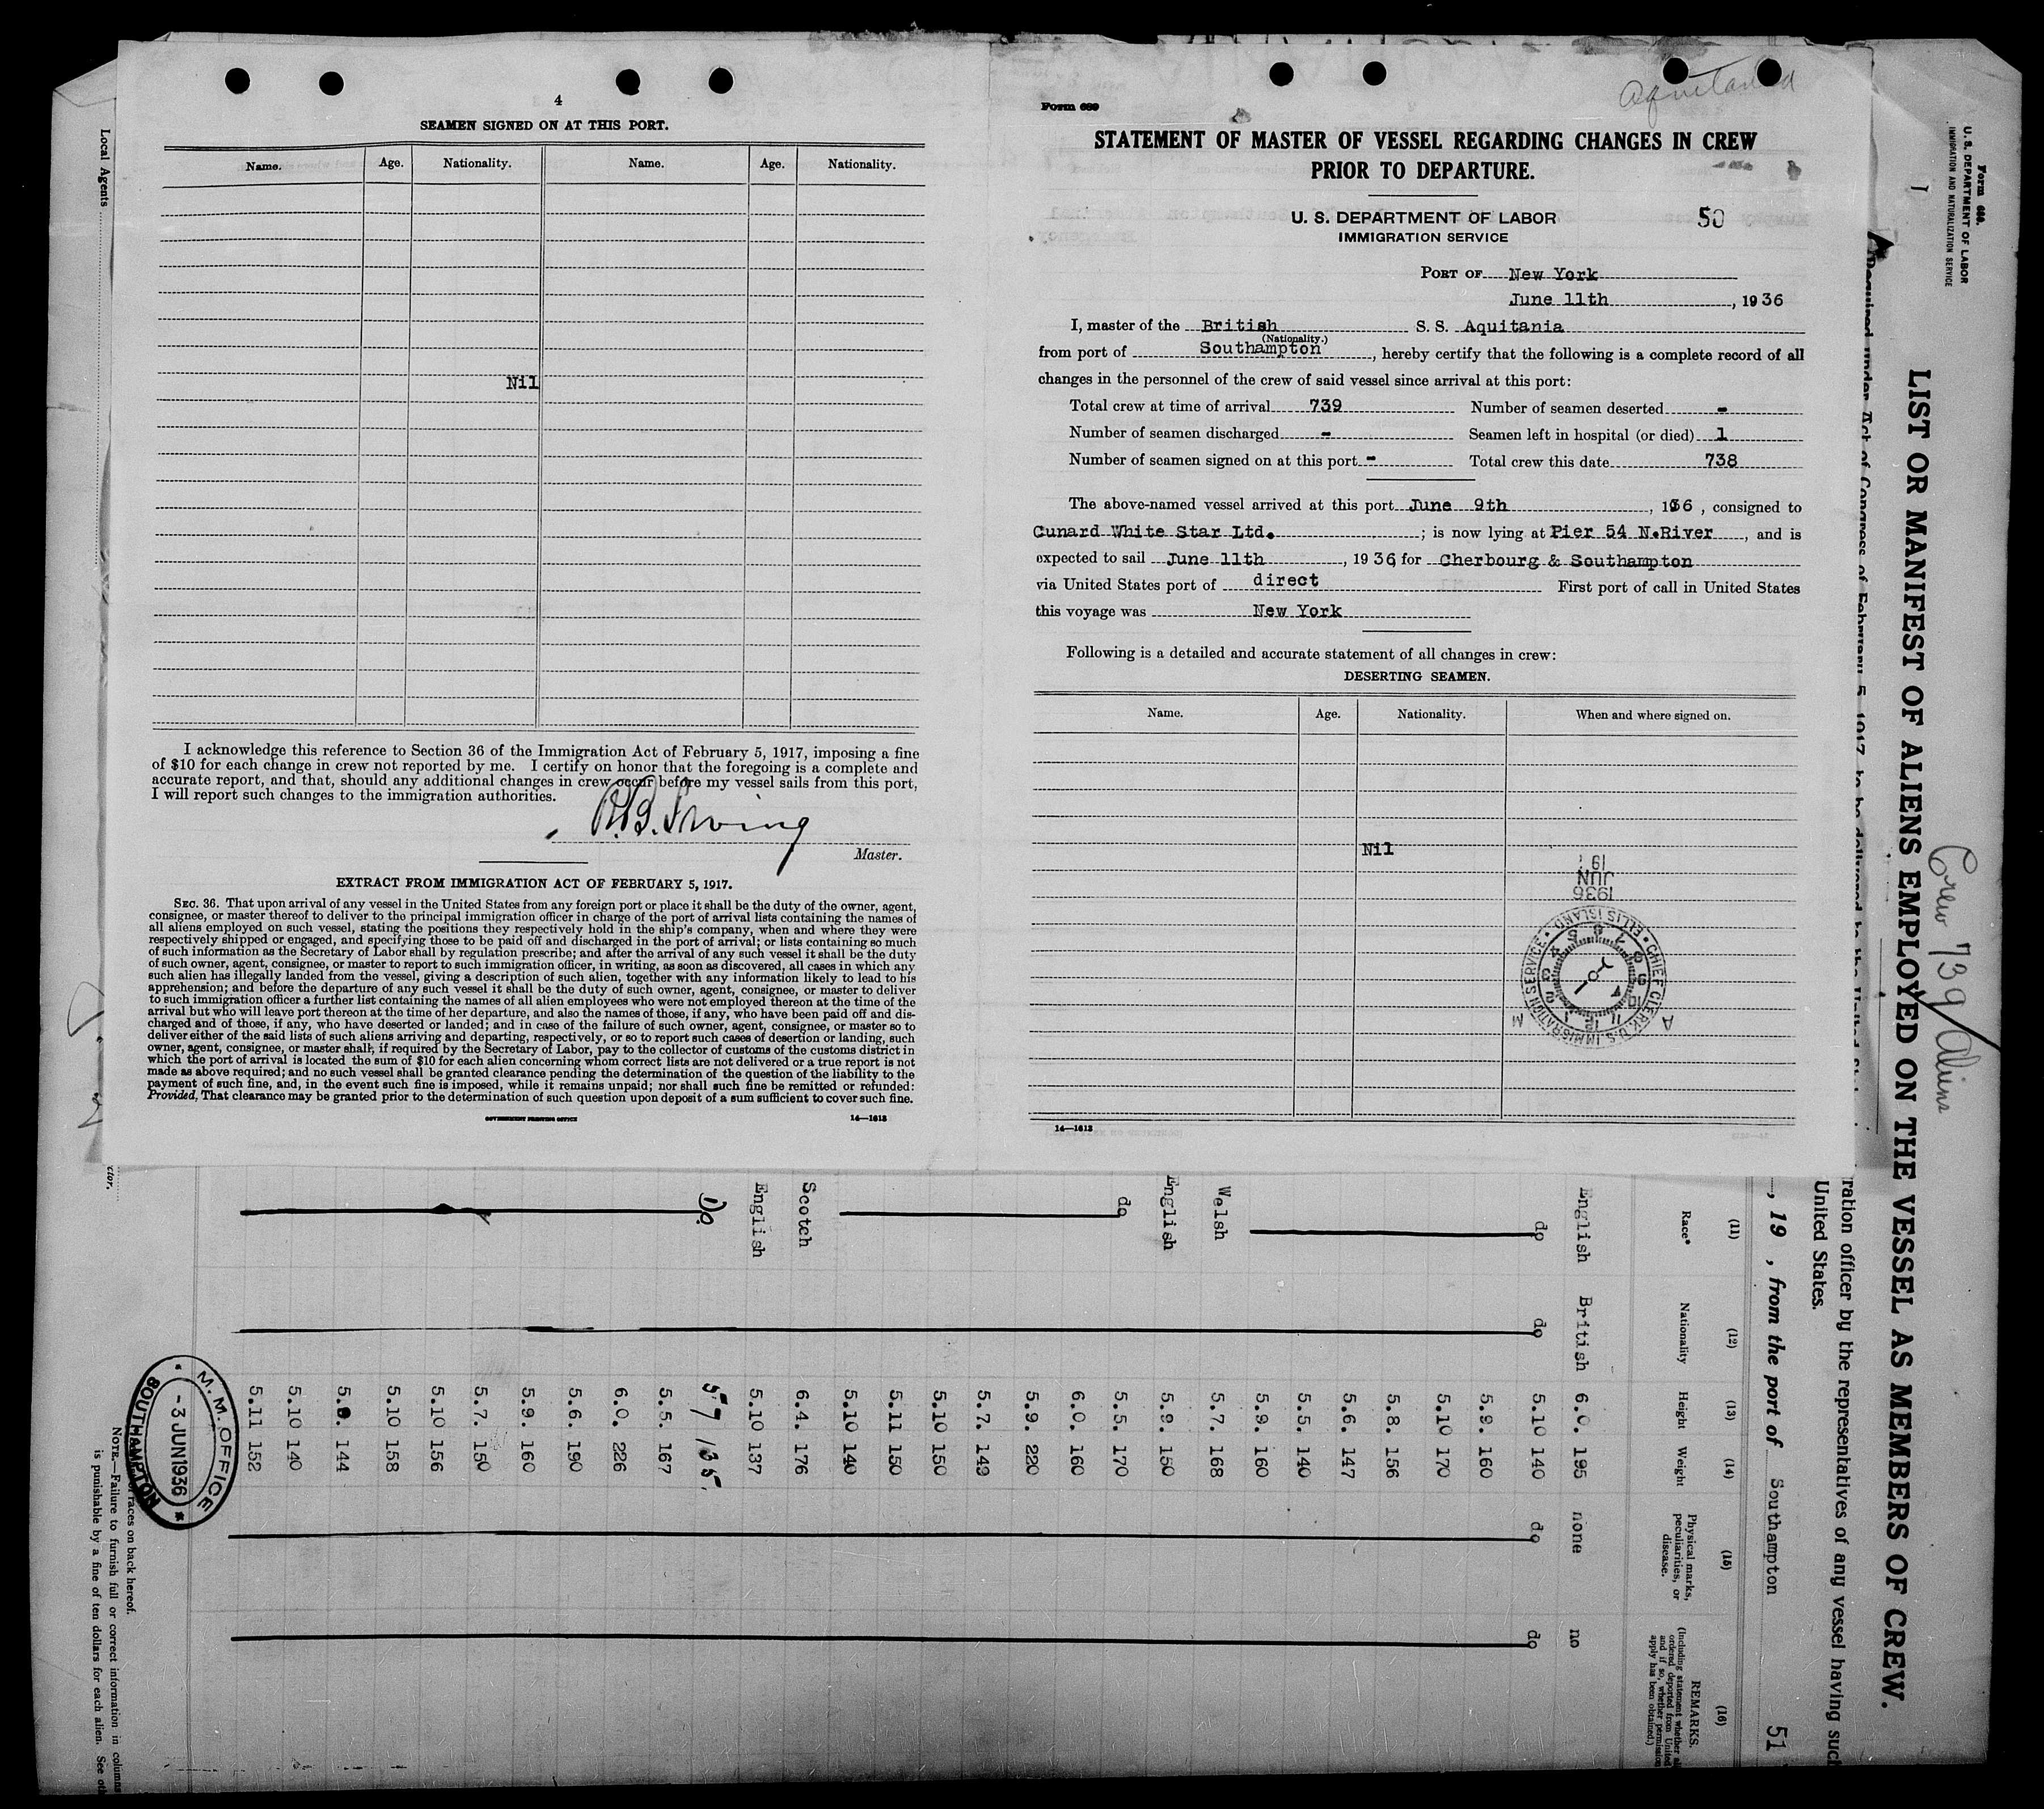 4
SEAMEN SIGNED ON AT THIS PORT.
Name. Age. Nationality. Name. Age. Nationality.
Nil
I acknowledge this reference to Section 36 of the Immigration Act of February 5, 1917, imposing a fine
of $10 for each change in crew not reported by me. I certify on honor that the foregoing is a complete and
accurate report, and that, should any additional changes in crew occur before my vessel sails from this port,
I will report such changes to the immigration authorities.
R.B. Irving
Master.
EXTRACT FROM IMMIGRATION ACT OF FEBRUARY 5, 1917.
SEC. 36. That upon arrival of any vessel in the United States from any foreign port or place it shall be the duty of the owner, agent,
consignee, or master thereof to deliver to the principal immigration officer in charge of the port of arrival lists containing the names of
all aliens employed on such vessel, stating the positions they respectively hold in the ship's company, when and where they were
respectively shipped or engaged, and specifying those to be paid off and discharged in the port of arrival; or lists containing so much
of such information as the Secretary of Labor shall by regulation prescribe; and after the arrival of any such vessel it shall be the duty
of such owner, agent, consignee, or master to report to such immigration officer, in writing, as soon as discovered, all cases in which any
such alien has illegally landed from the vessel, giving a description of such alien, together with any information likely to lead to his
apprehension; and before the departure of any such vessel it shall be the duty of such owner, agent, consignee, or master to deliver
to such immigration officer a further list containing the names of all alien employees who were not employed thereon at the time of the
arrival but who will leave port thereon at the time of her departure, and also the names of those, if any, who have been paid off and dis-
charged and of those, if any, who have deserted or landed; and in case of the failure of such owner, agent, consignee, or master so to
deliver either of the said lists of such aliens arriving and departing, respectively, or so to report such cases of desertion or landing, such
owner, agent, consignee, or master shall, if required by the Secretary of Labor, pay to the collector of customs of the customs district in
which the port of arrival is located the sum of $10 for each alien concerning whom correct lists are not delivered or a true report is not
made as above required; and no such vessel shall be granted clearance pending the determination of the question of the liability to the
payment of such fine, and, in the event such fine is imposed, while it remains unpaid; nor shall such fine be remitted or refunded:
Provided, That clearance may be granted prior to the determination of such question upon deposit of a sum sufficient to cover such fine.
GOVERNMENT PRINTING OFFICE 14—1613
Form 689
Aquitania
STATEMENT OF MASTER OF VESSEL REGARDING CHANGES IN CREW
PRIOR TO DEPARTURE.
U. S. DEPARTMENT OF LABOR 50
IMMIGRATION SERVICE
PORT OF New York
June 11th, 1936
I, master of the British S. S. Aquitania
(Nationality.)
from port of Southampton, hereby certify that the following is a complete record of all
changes in the personnel of the crew of said vessel since arrival at this port:
Total crew at time of arrival 739 Number of seamen deserted -
Number of seamen discharged - Seamen left in hospital (or died) 1
Number of seamen signed on at this port - Total crew this date 738
The above-named vessel arrived at this port June 9th, 1936, consigned to
Cunard White Star Ltd. ; is now lying at Pier 54 N.River, and is
expected to sail June 11th, 1936, for Cherbourg & Southampton
via United States port of direct First port of call in United States
this voyage was New York
Following is a detailed and accurate statement of all changes in crew:
DESERTING SEAMEN.
Name. Age. Nationality. When and where signed on.
Nil
1936
JUN
CHIEF CLERK U.S. IMMIGRATION SERVICE • ELLIS ISLAND •
A M
14—1613
Form 689.
U. S. DEPARTMENT OF LABOR
IMMIGRATION AND NATURALIZATION SERVICE
Crew 739/Aliens
LIST OR MANIFEST OF ALIENS EMPLOYED ON THE VESSEL AS MEMBERS OF CREW.
Required under Act of Congress of February 5, 1917, to be delivered to the United
ration officer by the representatives of any vessel having such
United States.
, 19 , from the port of Southampton 51
(11) (12) (13) (14) (15) (16)
Race* Nationality Height Weight Physical marks, peculiarities, or disease. REMARKS.
(Including statement whether
ordered deported from United
and if so, whether permission
apply has been obtained.)
English British 6.0. 195 none no
do do 5.10 140 do do
5.9. 160
5.10 170
5.8. 156
5.6. 147
5.5. 140
5.9. 160
Welsh 5.7. 168
English 5.9. 150
do 5.5. 170
6.0. 160
5.9. 220
5.7. 149
5.10 150
5.11 150
5.10 140
Scotch 6.4. 176
English 5.10 137
Do. 5.7 135.
5.5. 167
6.0. 226
5.6. 190
5.9. 160
5.7. 150
5.10 156
5.10 158
144
5.10 140
5.11 152
M.M. OFFICE
-3 JUN 1936
SOUTHAMPTON
of races on back hereof.
NOTE.—Failure to furnish full or correct information in columns
is punishable by a fine of ten dollars for each alien. See
Local Agents